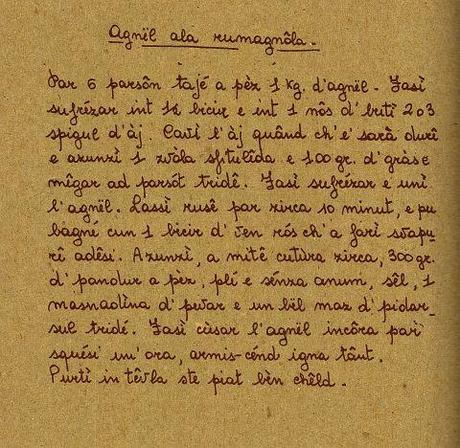 Agnël ala rumagnôla.
Par 6 parsôn tajé a pèz 1 kg. d'agnël. Fasì
sufrézar int ½ bicir e int 1 nôs d'butì 2 o 3
spigul d'àj. Cavì l'àj quând ch'e' sarà durê
e azunzì 1 zvòla sfitulêda e 100 gr. d'gràs e
mêgar ad parsót tridê. Fasì sufrézar e unì
l'agnël. Lassì rusê par zirca 10 minut, e pu
bagné cun 1 bicir d' ven rós ch'a farì svapu-
rê adêsi. Azunzì, a mitê cutùra zirca, 300 gr.
d' pandur a pèz, plé e sénza anum, sêl, 1
masnadìna d' pévar e un bël maz d' pidar-
sul tridé. Fasì cùsar l'agnël incôra par
squési un'ora, armis-cénd igna tânt.
Purtì in têvla ste piat bèn chêld.